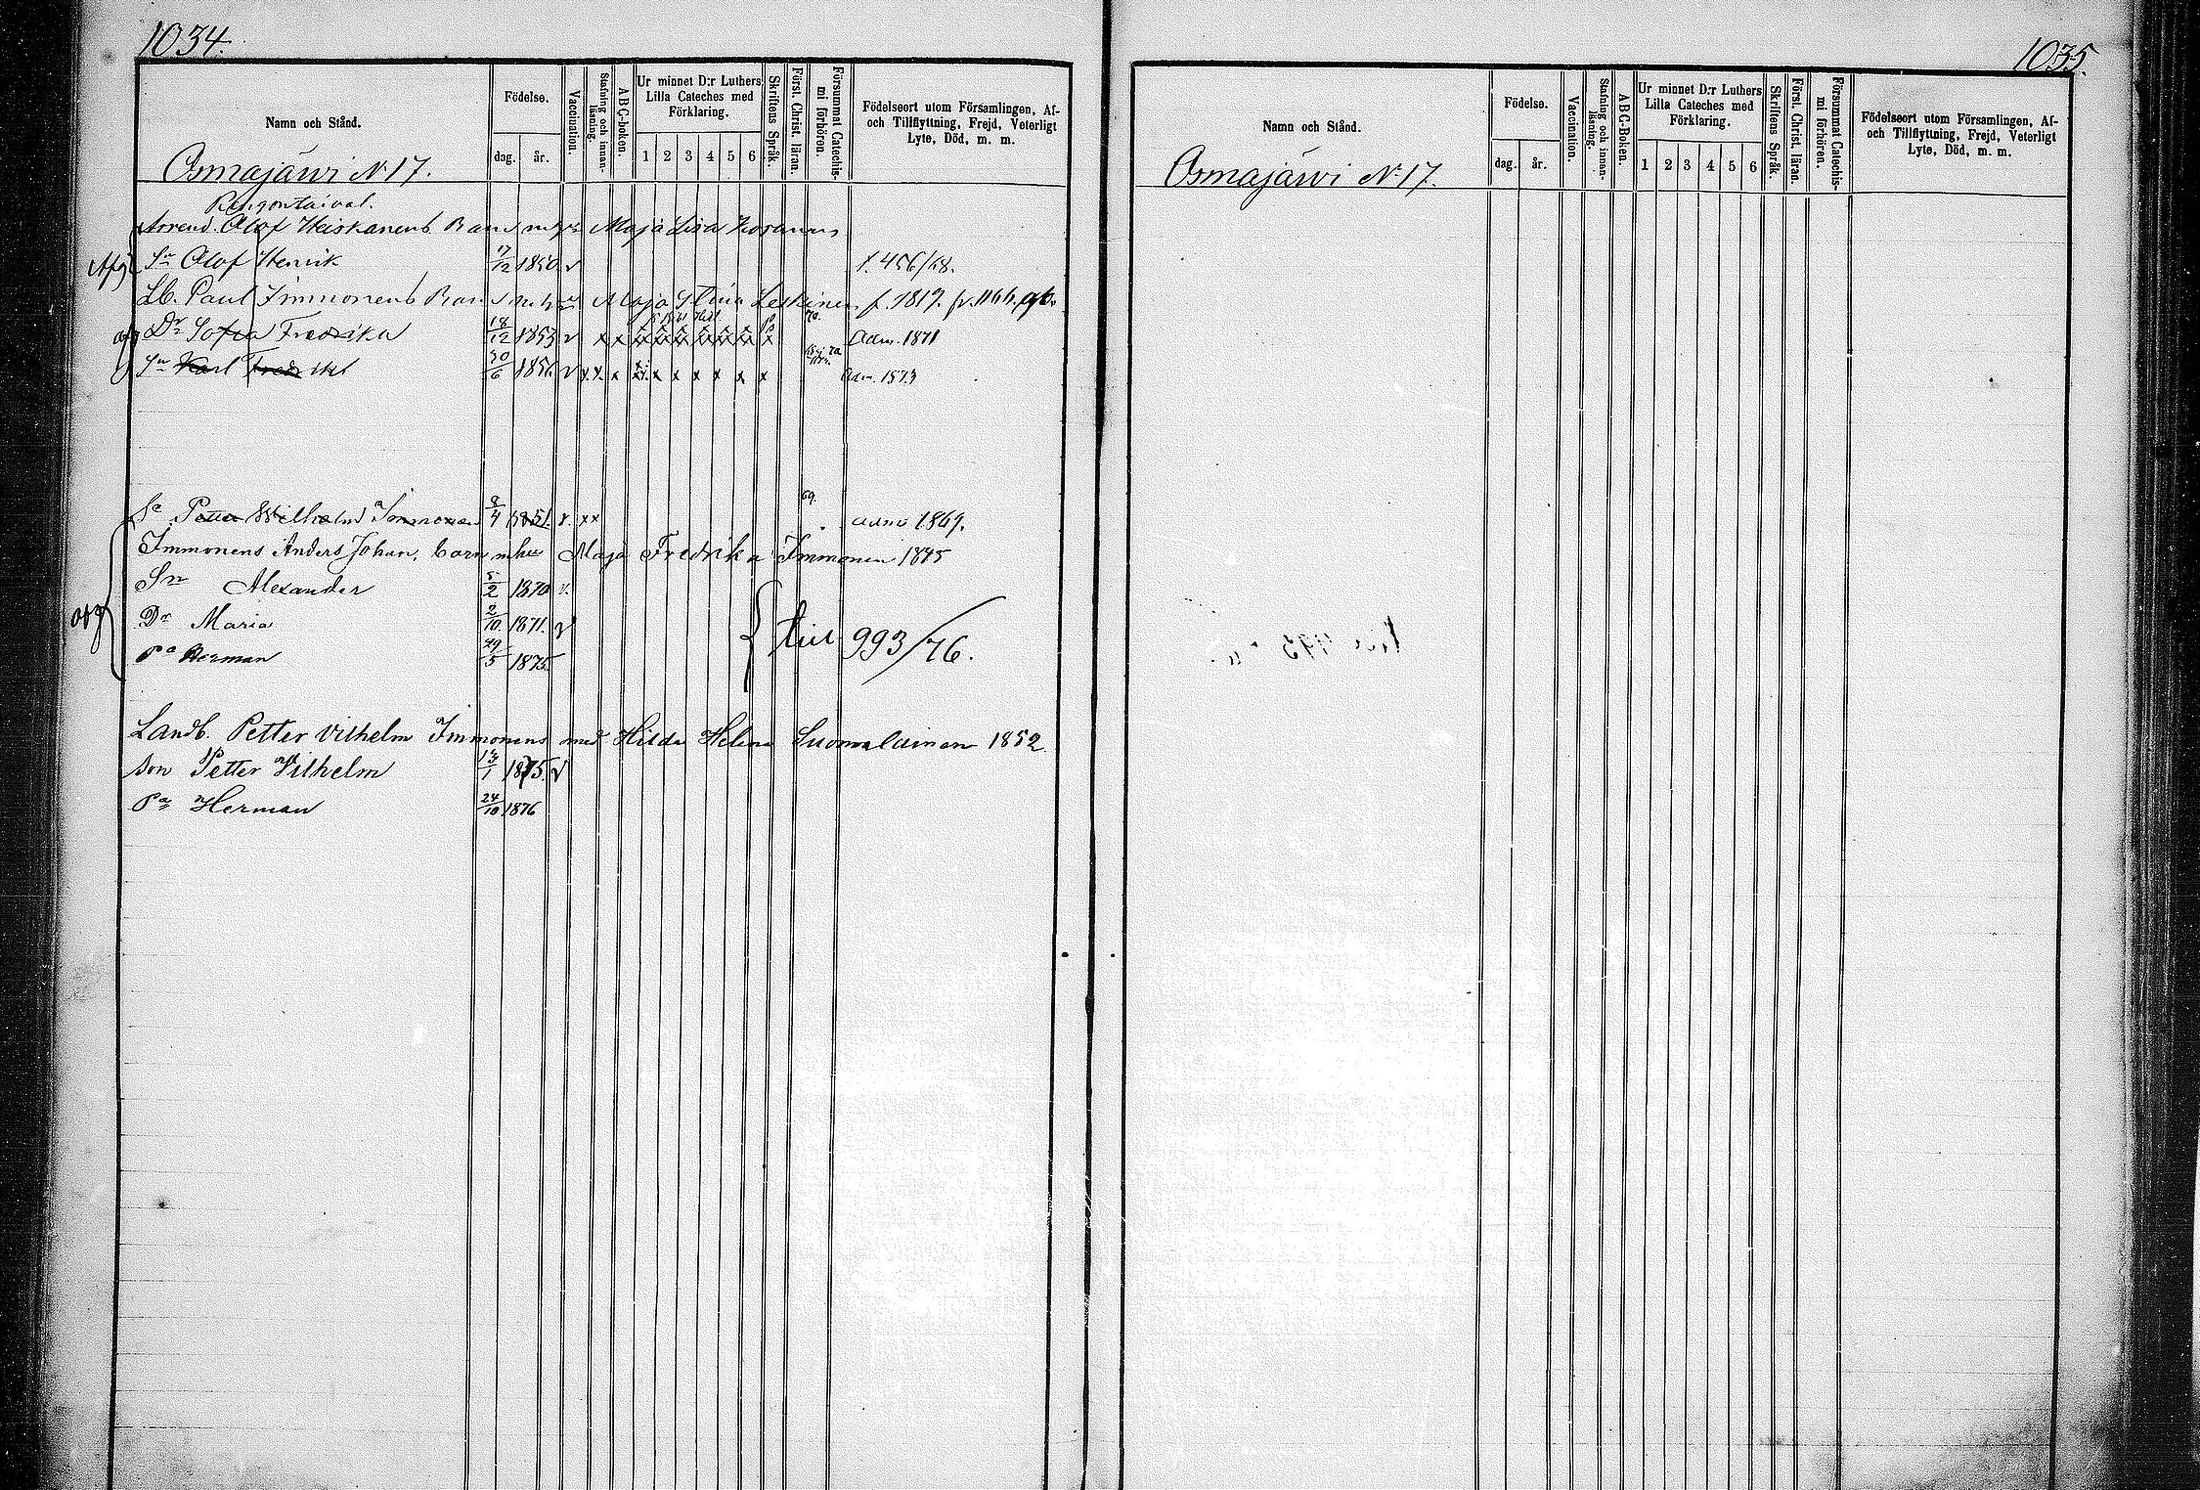 1034.
Namn och Stånd.
Födelse.
dag. år.
Vaccination.
Stafning och innan-läsning.
ABC-boken.
Ur minnet D:r Luthers Lilla Cateches med Förklaring.
1 2 3 4 5 6
Skriftens Språk.
Först. Christ. läran.
Försummat Catechis-mi förhören.
Födelseort utom Församlingen, Af-
och Tillflyttning, Frejd, Veterligt
Lyte, Död, m. m.
Osmajärvi N:17.
Arrend. Olof Heiskanens Barn Maja Lisa
Afg. Sn Olof Henrik 17/12 1850 v f. 456/68.
Lb. Paul Immonens Barn Maja Stina Leskinen f. 1817.
afg Dr Sofia Fredrika 18/12 1853 v x x x x x x x x x 70. Adm. 1871
Sn Karl Fredrikl 30/6 1856 v x x x x x x x x x x Adm. 1873
Sn Petter Wilhelm Immonen 9/4 1851. v. x x 69. adm 1869.
Immonens Anders Johan, barn Maja Fredrika Immonen 1845
afg
Sn Alexander 5/2 1870 v.
Dr Maria 2/10. 1871. v
Pa Herman 29/5 1875.
till 993/76.
Landb. Petter Vilhelm Immonens med Hilda Helena Suomalainen 1852.
son Petter Vilhelm 13/1 1875. v
Pa Herman 24/10 1876
1035.
Namn och Stånd.
Födelse.
dag. år.
Vaccination.
Stafning och innan-läsning.
ABC-Boken.
Ur minnet D:r Luthers Lilla Cateches med Förklaring.
1 2 3 4 5 6
Skriftens Språk.
Först. Christ. läran.
Försummat Catechis-mi förhören.
Födelseort utom Församlingen, Af-
och Tillflyttning, Frejd, Veterligt
Lyte, Död, m. m.
Osmajärvi N:17.